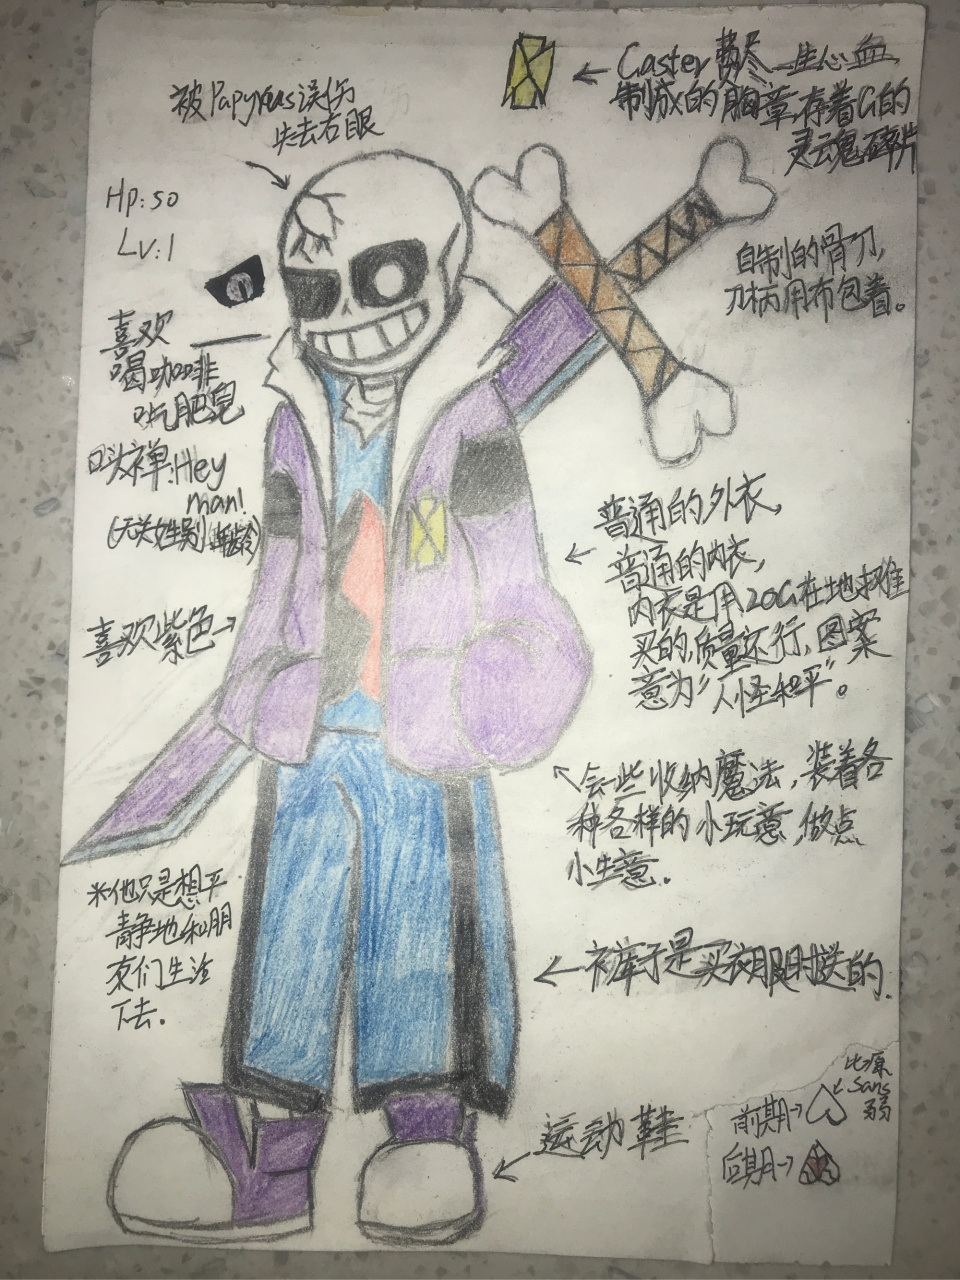 Gaster 费尽一生心血
制成X的胸章,存着G的
灵魂碎片
被Papyrus误伤
失去右眼
Hp:50
Lv:1
自制的骨刀,
刀柄用布包着。
喜欢
喝咖啡
吃肥皂
口头禅:Hey
man!
(无关姓别 年龄)
喜欢紫色→
普通的外衣,
普通的内衣,
内衣是用20G在地摊
买的,质量还行,图案
意为“人怪和平”。
会些收纳魔法,装着各
种各样的小玩意,做点
小生意.
※他只是想平
静地和朋
友们生活
下去.
裤子是买衣服时送的.
运动鞋
比原
Sans
弱
前期→
后期→